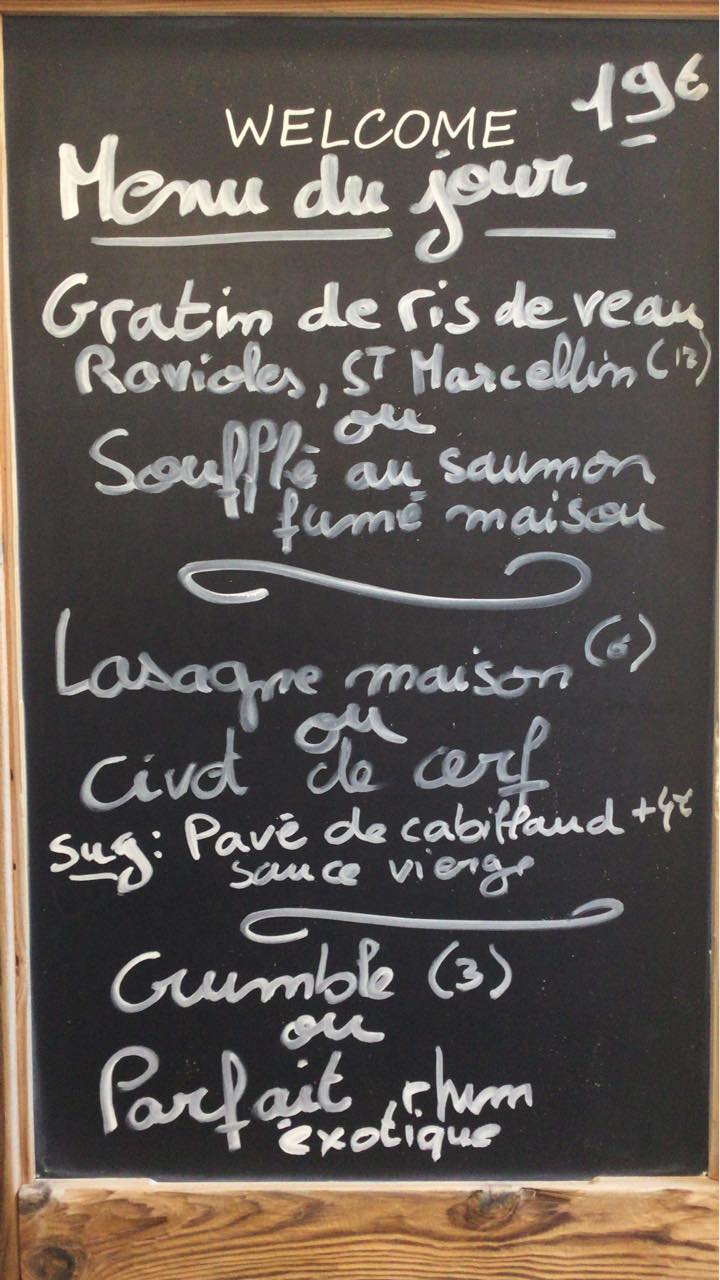 19€
WELCOME
Menu du jour
Gratin de ris de veau
Ravioles, ST Marcellin (12)
ou
Soufflé au saumon
fumé maison
Lasagne maison (6)
ou
Civet de cerf
sug: Pavé de cabillaud +4€
sauce vierge
Crumble (3)
ou
Parfait rhum
exotique